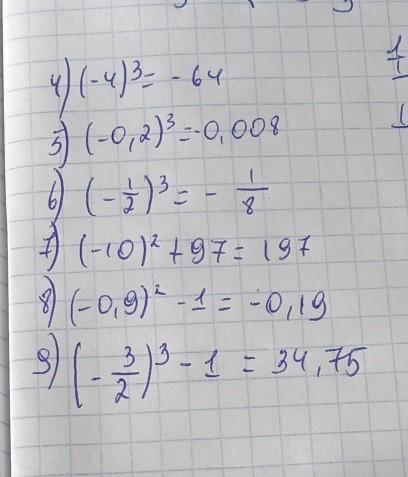 4) (-4)³ = -64
5) (-0,2)³ = -0,008
6) (-1/2)³ = - 1/8
7) (-10)² + 97 = 197
8) (-0,9)² - 1 = -0,19
9) (-3/2)³ - 1 = 34,75